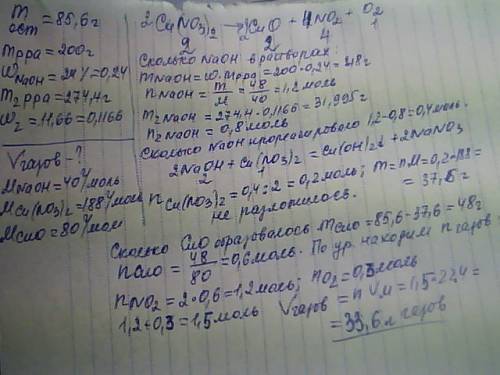 m ост = 85,6 г
m рра = 200 г
ω NaOH = 24% = 0,24
m₂ рра = 274,4 г
ω₂ = 11,66 = 0,1166
V газов - ?
M NaOH = 40 г/моль
M Cu(NO₃)₂ = 188 г/моль
M CuO = 80 г/моль
2Cu(NO₃)₂ → 2CuO + 4NO₂ + O₂
2 2 4 1
Сколько NaOH в растворах:
m NaOH = ω · m рра = 200 · 0,24 = 48 г
n NaOH = m/M = 48/40 = 1,2 моль
m₂ NaOH = 274,4 · 0,1166 = 31,995 г
n₂ NaOH = 0,8 моль
Сколько NaOH прореагировало 1,2-0,8=0,4 моль.
2NaOH + Cu(NO₃)₂ = Cu(OH)₂↓ + 2NaNO₃
2 1
n Cu(NO₃)₂ = 0,4 : 2 = 0,2 моль; m = nM = 0,2 · 188 =
= 37,6 г
не разложилось.
Сколько CuO образовалось m CuO = 85,6 - 37,6 = 48 г
n CuO = 48/80 = 0,6 моль. По ур. находим n газов
n NO₂ = 2 · 0,6 = 1,2 моль; n O₂ = 0,3 моль
1,2 + 0,3 = 1,5 моль V газов = n Vм = 1,5 · 22,4 =
= 33,6 л газов